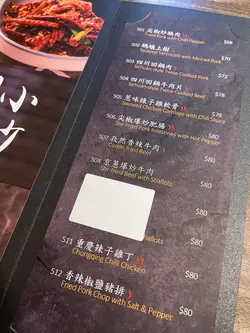 小
炒
501 尖椒炒鵝肉
Fried Pork with Chili Pepper
$68
502 螞蟻上樹
Sauteed Vermicelli with Minced Pork
$70
503 四川回鍋肉
Sichuan-style Twice-Cooked Pork
$72
504 四川回鍋牛肉片
Sichuan-style Twice-Cooked Beef
$78
505 惹味辣子雞軟骨
Sauteed Chicken Cartilage with Chili Sauce
$75
506 尖椒爆炒肥腸
Stir-Fried Pork Intestines with Hot Pepper
$80
507 孜然香辣牛肉
Cumin Fried Beef
$80
508 京蔥爆炒牛肉
Stir-fried Beef with Shallots
$80
Shallots
$80
511 重慶辣子雞丁
Chongqing Chilli Chicken
$80
512 香辣椒鹽豬排
Fried Pork Chop with Salt & Pepper
$80